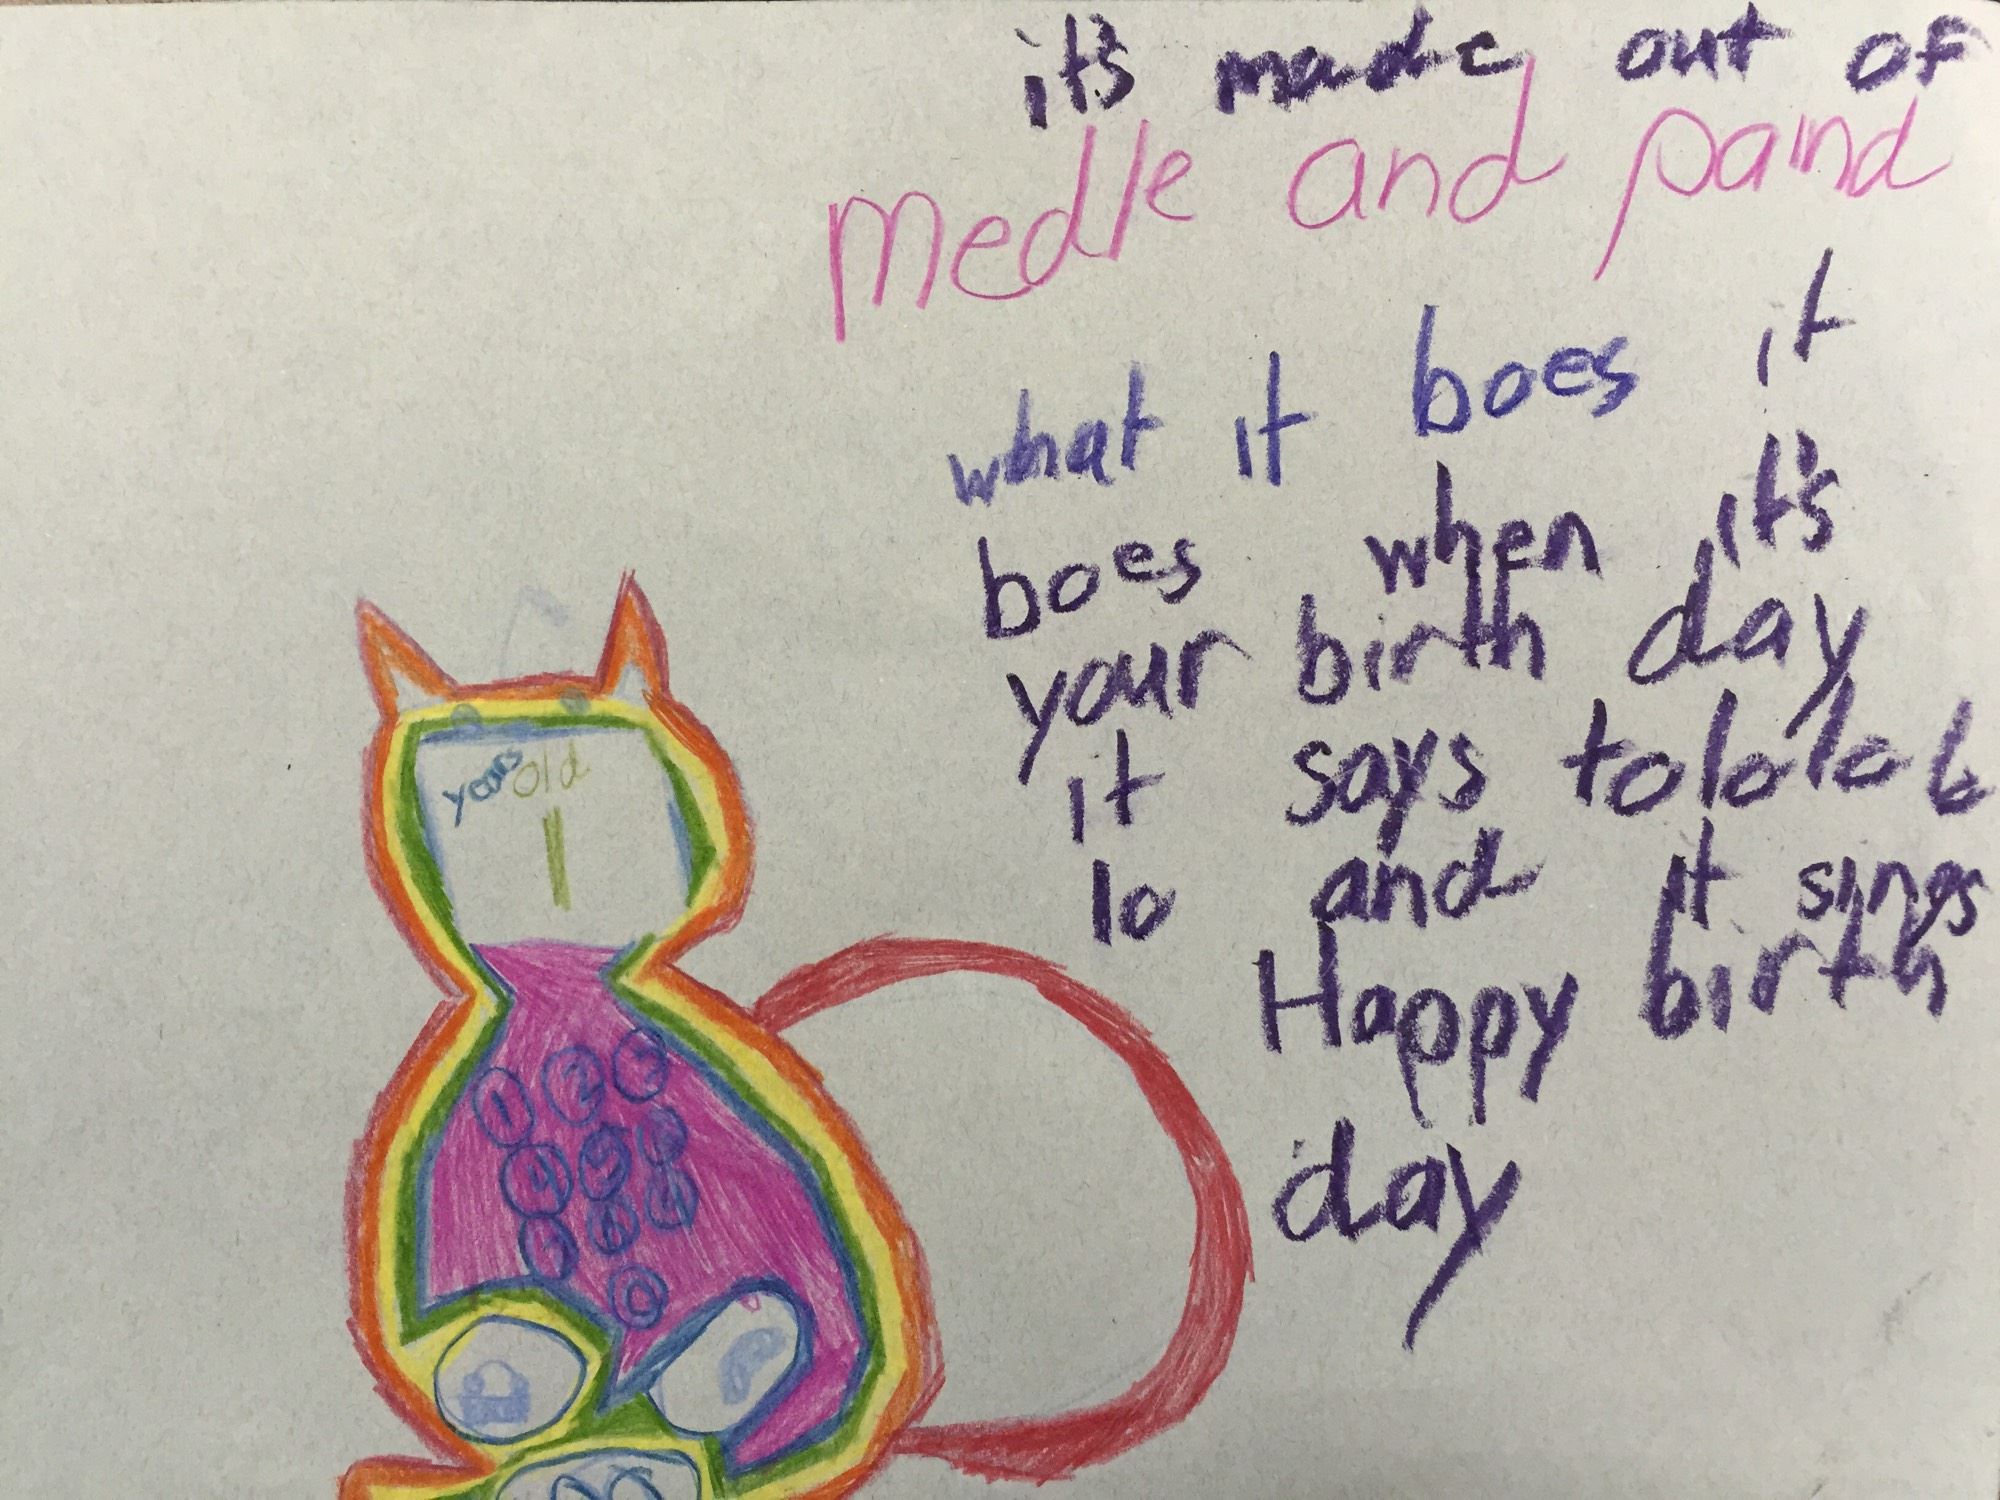 it's made out of
medle and paind
what it boes it
boes when it's
your birth day
it says tolololo b
lo and it sings
Happy birth
day
years old
1
1 2 3
4 5
7 6
0